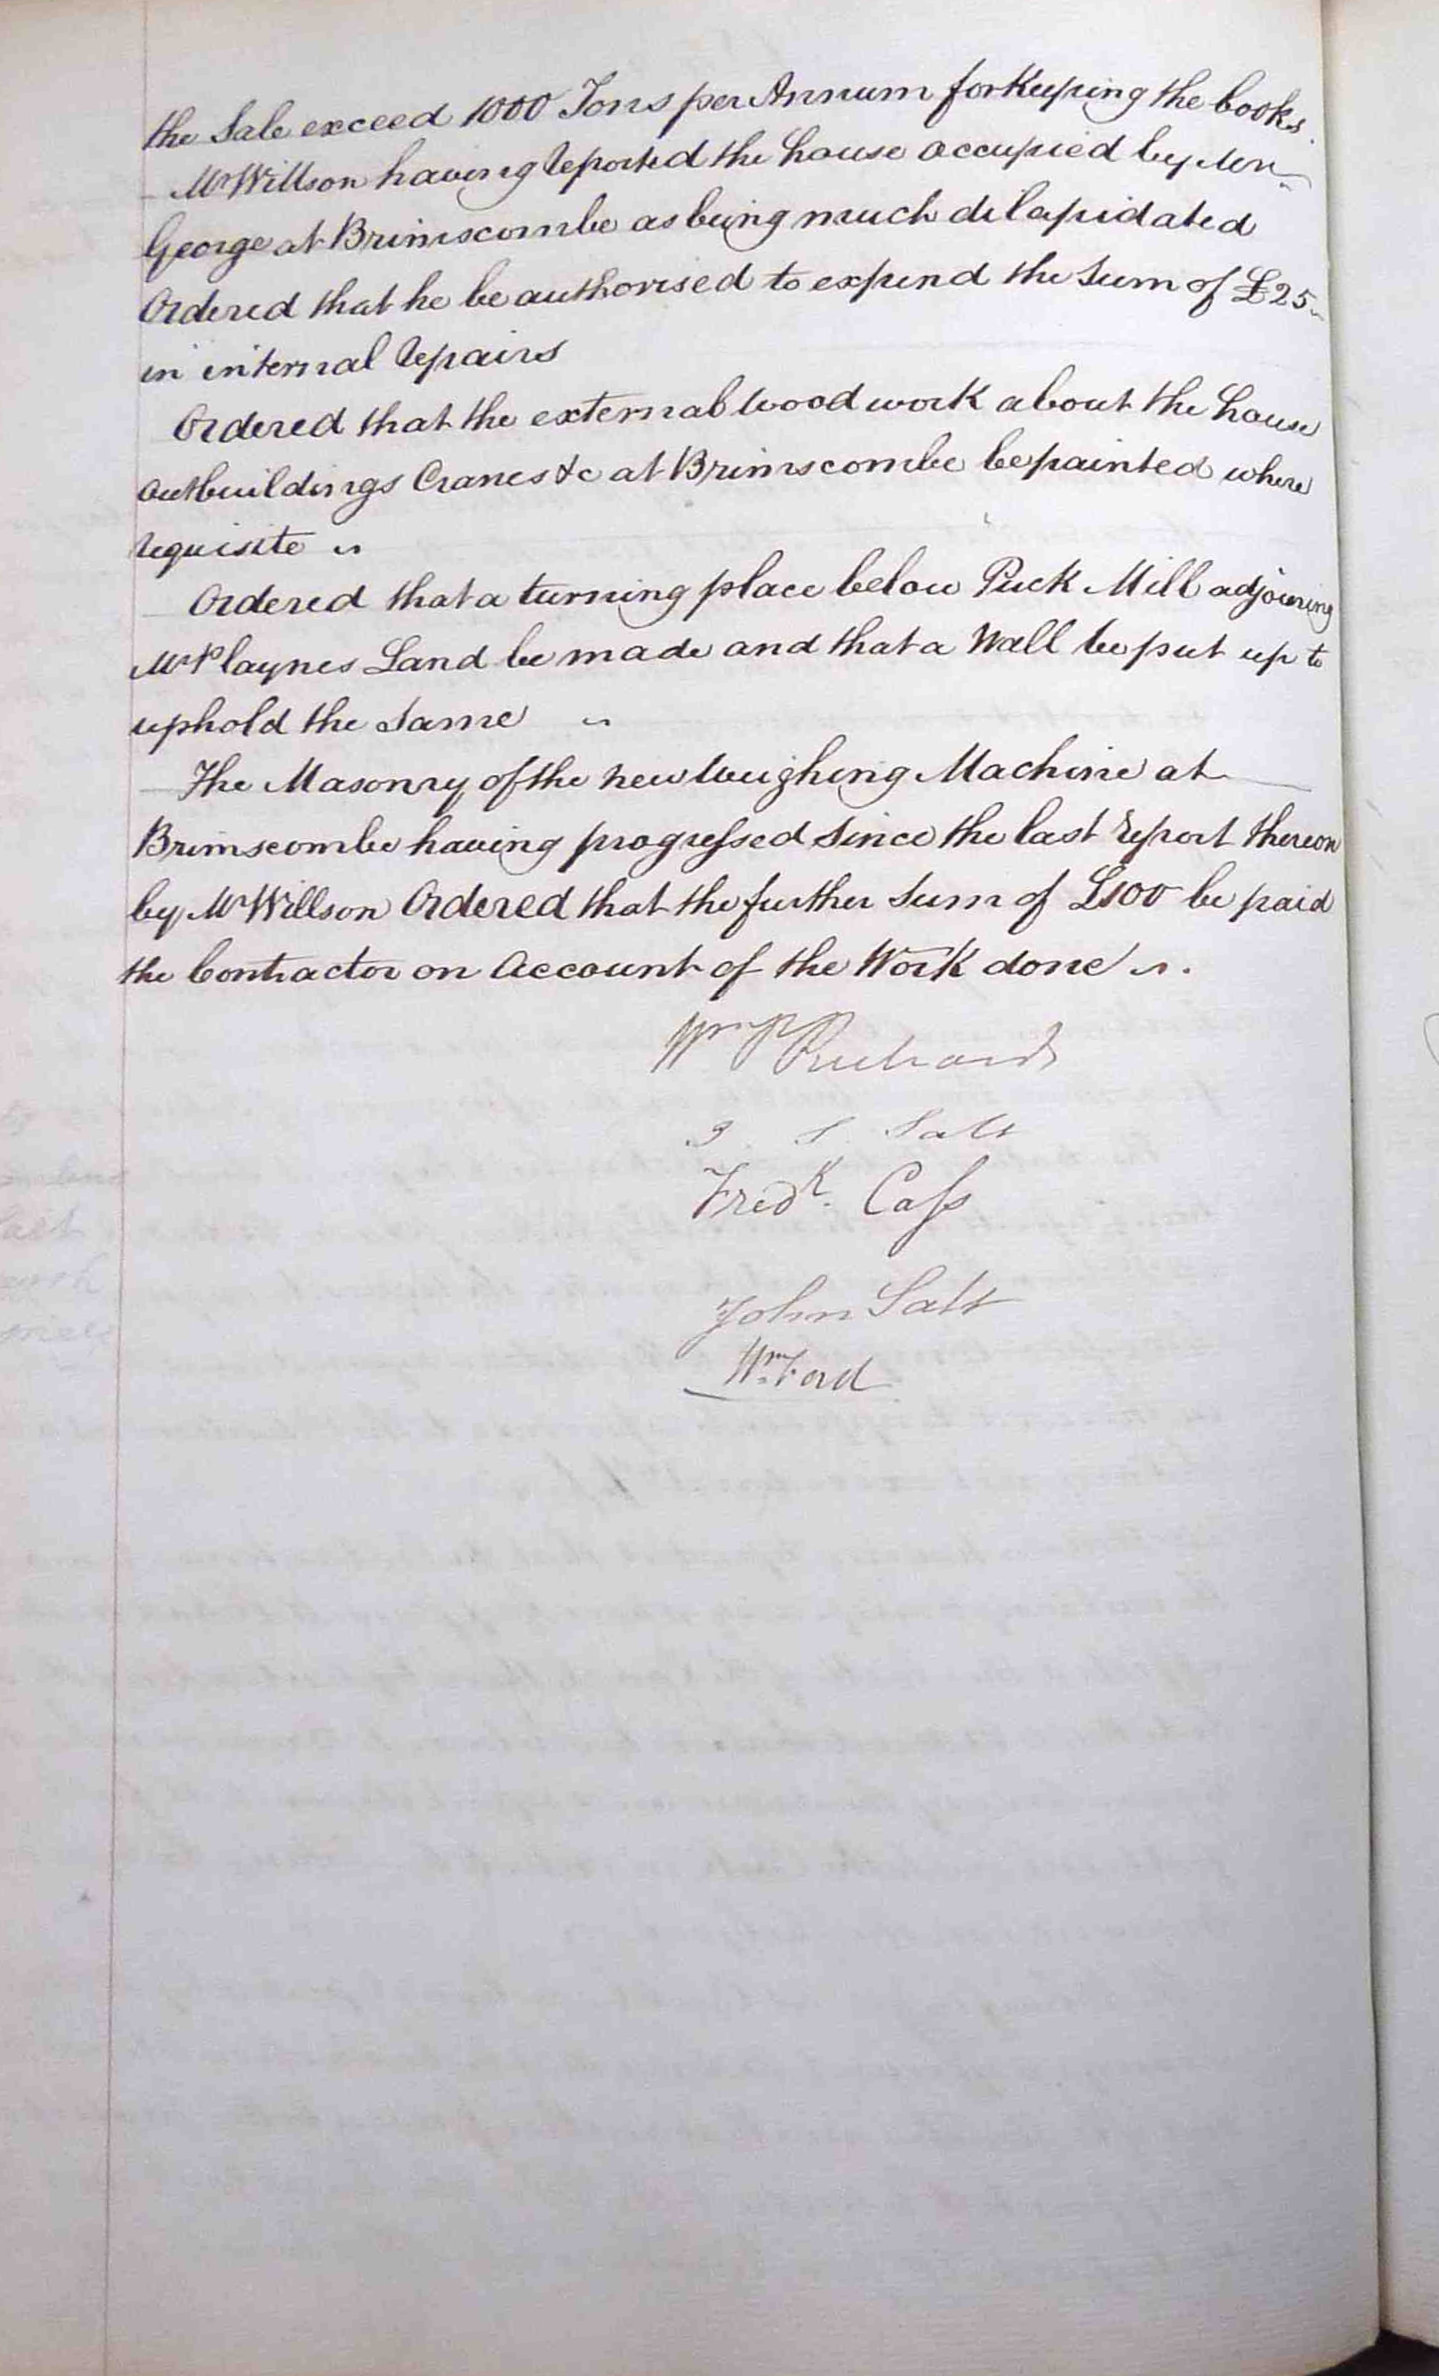 the Sale exceed 1000 Tons per Annum for Keeping the books.
Mr Willson having reported the house occupied by Mr
George at Brimscombe as being much dilapidated
Ordered that he be authorised to expend the Sum of £25
in internal repairs
Ordered that the external wood work about the house
outbuildings Cranes &c at Brimscombe be painted where
requisite
Ordered that a turning place below Puck Mill adjoining
Mr Playnes Land be made and that a Wall be put up to
uphold the same
The Masonry of the new Weighing Machine at
Brimscombe having progressed since the last report thereon
by Mr Willson Ordered that the further Sum of £100 be paid
the Contractor on Account of the Work done
Wm P Richards
J. S. Salt
Fredk. Cass
John Salt
Wm Ford